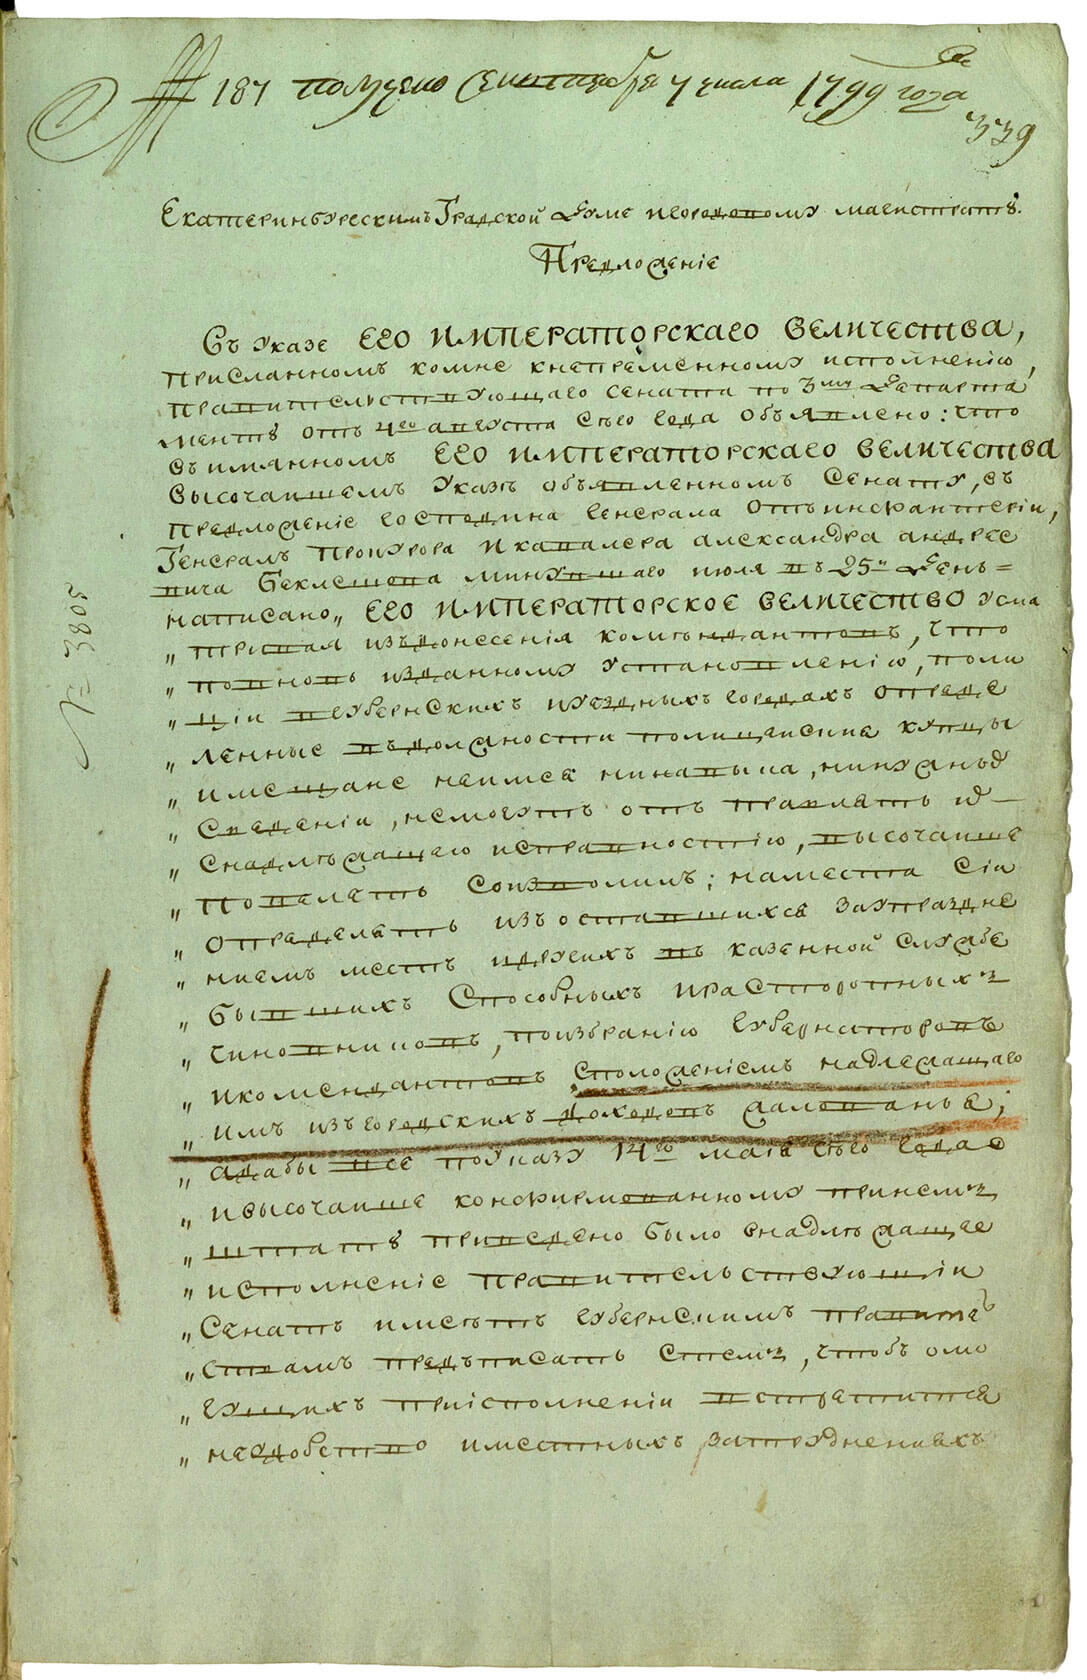 № 187 получено сентября 7 числа 1799 года
339
Екатеринбургскимъ Градской Думе игородовому магистратѣ.
Предложенїе
Въ указе ЕГО ИМПЕРАТОРСКАГО ВЕЛИЧЕСТВА,
присланномъ комне кнепременному исполненїю,
правительствующаго сената по 3му департа
ментѣ отъ 4го августа сего года объявлено: что
въ имянномъ ЕГО ИМПЕРАТОРСКАГО ВЕЛИЧЕСТВА
высочаишемъ указѣ объявленномъ сенату, въ
предложенїе господина генерала отъ инфантерїи,
Генералъ Прокурора и кавалера александра андрее
вича Беклешова минувшаго июля въ 25й день=
написано„ ЕГО ИМПЕРАТОРСКОЕ ВЕЛИЧЕСТВО усма
„ тривая изъ донесенїя комѣндантовъ, что
„ повново изданному установленїю, поли
„ цїи вгубернскихъ иуездныхъ городахъ опреде
„ ленные въ должности полицеиския купцы
„ имещане неимея никавыка, нинужныѣ
„ сведенїи, немогутъ отъ правлять ић
„ снадлѣжащею исправностїю, высочаише
„ повелѣть соизволилъ; наместа сїи
„ определять изъ оставшихся заупраздне
„ ниемъ местъ идругихъ въ казенной службе
„ бывшихъ способныхъ ирасторопныхъ
„ чиновниковъ, поизбранїю губернаторовъ
„ икомендантовъ сположенїемъ надлежащаго
„ имъ изъ городскихъ доходовъ жалованья;
„ адабы все поуказу 14го мая сего года
„ ивысочаише конфирмованному принемъ
„ штатѣ приведено было внадлѣжащее
„ исполненїе правительствующїи
„ Сенатъ имеетъ губернскимъ правитель
„ ствамъ предъписать стемъ, чтобъ омо
„ гущихъ приїсполненїи встретится
„ неудобство иместныхъ затрудненияхъ
№ 3805